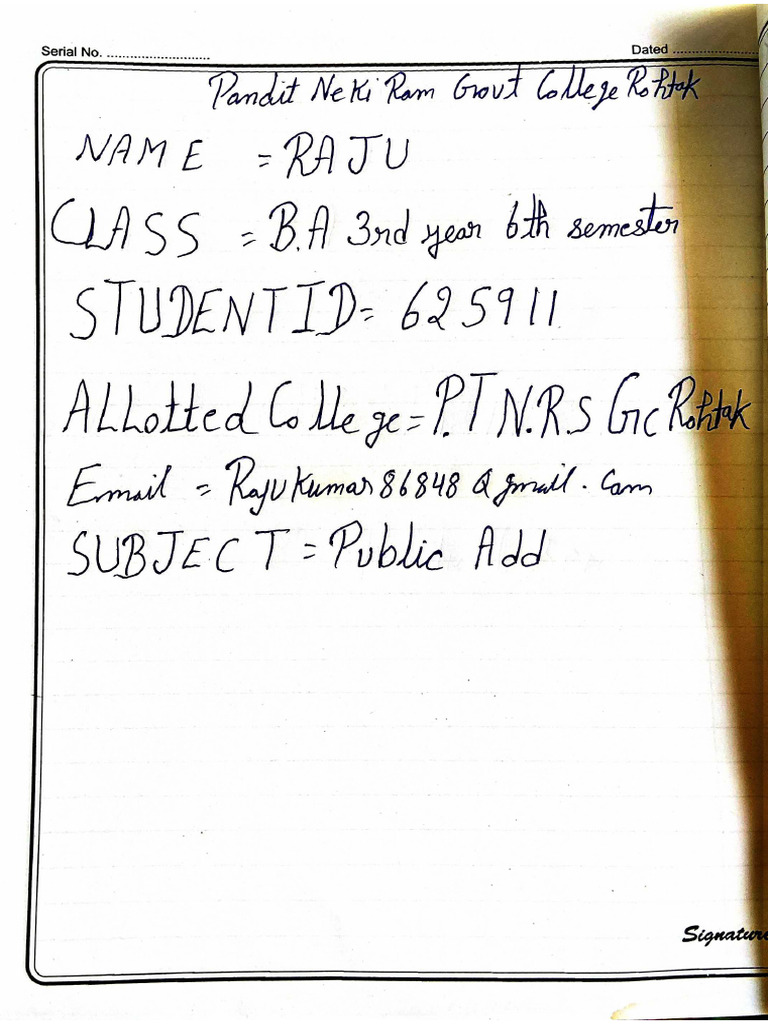 Serial No. ............................ Dated ......................
Pandit Neki Ram Govt College Rohtak
NAME = RAJU
CLASS = B.A 3rd year 6th semester
STUDENT ID = 625911
ALLotted College = P.T N.R.S GC Rohtak
Email = Rajukumar86848@gmail.com
SUBJECT = Public Add
Signature